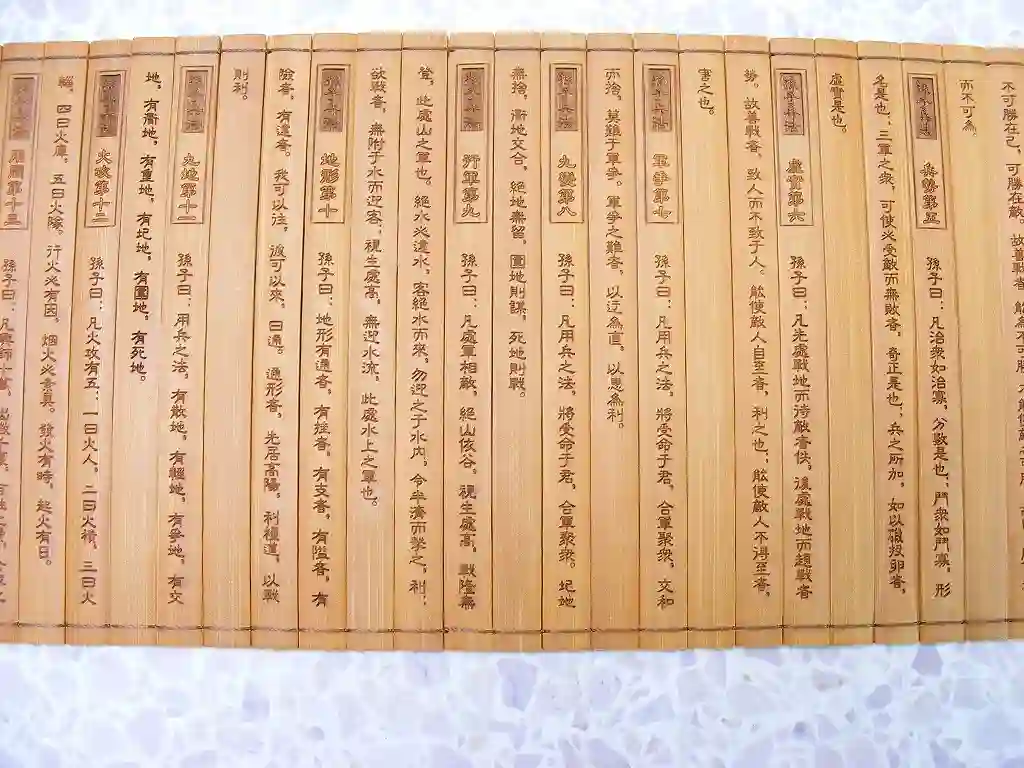 不可勝在己，可勝在敵。故善戰者，能為不可勝，不能使敵
而不可為。
孫子兵法 兵勢第五 孫子曰：凡治衆如治寡，分數是也；鬥衆如鬥寡，形
名是也；三軍之衆，可使必受敵而無敗者，奇正是也；兵之所加，如以碫投卵者，
虛實是也。
孫子兵法 虛實第六 孫子曰：凡先處戰地而待敵者佚，後處戰地而趨戰者
勞。故善戰者，致人而不致于人。能使敵人自至者，利之也；能使敵人不得至者，
害之也。
孫子兵法 軍爭第七 孫子曰：凡用兵之法，將受命于君，合軍聚衆，交和
而捨，莫難于軍爭。軍爭之難者，以迂為直，以患為利。
孫子兵法 九變第八 孫子曰：凡用兵之法，將受命于君，合軍聚衆。圮地
無捨，衢地交合，絕地無留，圍地則謀，死地則戰。
孫子兵法 行軍第九 孫子曰：凡處軍相敵，絕山依谷。視生處高，戰隆無
登，此處山之軍也。絕水必遠水，客絕水而來，勿迎之于水內，令半濟而擊之，利；
欲戰者，無附于水而迎客；視生處高，無迎水流，此處水上之軍也。
孫子兵法 地形第十 孫子曰：地形有通者，有挂者，有支者，有隘者，有
險者，有遠者。我可以往，彼可以來，曰通。通形者，先居高陽，利糧道，以戰
則利。
孫子兵法 九地第十一 孫子曰：用兵之法，有散地，有輕地，有爭地，有交
地，有衢地，有重地，有圮地，有圍地，有死地。
孫子兵法 火攻第十二 孫子曰：凡火攻有五：一曰火人，二曰火積，三曰火
輜，四曰火庫，五曰火隊。行火必有因，烟火必素具。發火有時，起火有日。
孫子兵法 用間第十三 孫子曰：凡興師十萬，出徵千里，百姓之費，公家之